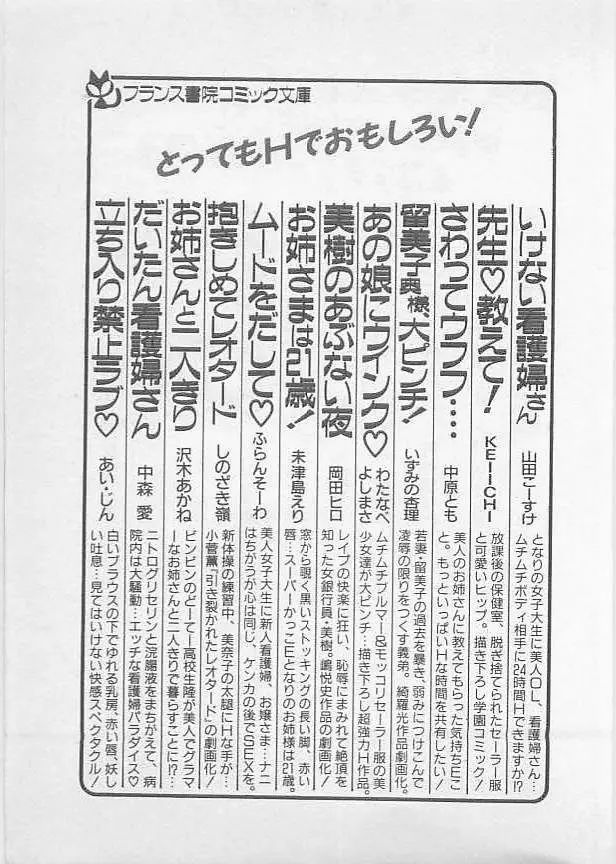 フランス書院コミック文庫
とってもHでおもしろい!
いけない看護婦さん 山田こーすけ
となりの女子大生に美人OL、看護婦さん…
ムチムチボディ相手に24時間Hできますか!?
先生♡教えて! KEIICHI
放課後の保健室、脱ぎ捨てられたセーラー服
と可愛いヒップ。描き下ろし学園コミック!
さわってウフフ…. 中原とも
美人のお姉さんに教えてもらった気持ちEこ
と。もっといっぱいHな時間を共有したい!
留美子奥様、大ピンチ! いずみの杏理
若妻・留美子の過去を暴き、弱みにつけこんで
凌辱の限りをつくす義弟。綺羅光作品劇画化。
あの娘にウインク♡ わたなべよしまさ
ムチムチブルマー&モッコリセーラー服の美
少女達が大ピンチ…描き下ろし超強力H作品。
美樹のあぶない夜 岡田ヒロ
レイプの快楽に狂い、恥辱にまみれて絶頂を
知った女銀行員・美樹。嶋悦史作品の劇画化!
お姉さまは21歳! 未津島えり
窓から覗く黒いストッキングの長い脚、赤い
唇…スーパーかっこEとなりのお姉様は21歳。
ムードをだして♡ ふらんそーわ
美人女子大生に新人看護婦、お嬢さま…ナニ
はちがうが心は同じ、ケンカの後でSEXを。
抱きしめてレオタード しのざき嶺
新体操の練習中、美奈子の太腿にHな手が…
小菅薫「引き裂かれたレオタード」の劇画化!
お姉さんと二人きり 沢木あかね
ビンビンのどーてー高校生隆が美人でグラマ
ーなお姉さんと二人きりで暮らすことに!?…
だいたん看護婦さん 中森 愛
ニトログリセリンと浣腸液をまちがえて、病
院内は大騒動…エッチな看護婦パラダイス♡
立ち入り禁止ラブ♡ あい・じん
白いブラウスの下でゆれる乳房、赤い唇、妖し
い吐息…見てはいけない快感スペクタクル!